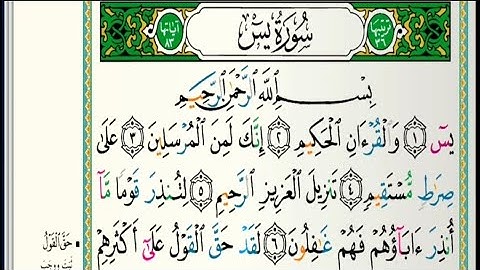 ترتيبها ٣٦
سُورَةُ يسٓ
آياتها ٨٣
بِسْمِ اللَّهِ الرَّحْمَٰنِ الرَّحِيمِ
يسٓ ١ وَالْقُرْءَانِ الْحَكِيمِ ٢ إِنَّكَ لَمِنَ الْمُرْسَلِينَ ٣ عَلَىٰ
صِرَٰطٍ مُّسْتَقِيمٍ ٤ تَنزِيلَ الْعَزِيزِ الرَّحِيمِ ٥ لِتُنذِرَ قَوْمًا مَّآ
أُنذِرَ ءَابَآؤُهُمْ فَهُمْ غَٰفِلُونَ ٦ لَقَدْ حَقَّ الْقَوْلُ عَلَىٰٓ أَكْثَرِهِمْ
حَقَّ الْقَوْلُ
ثبت ووجب